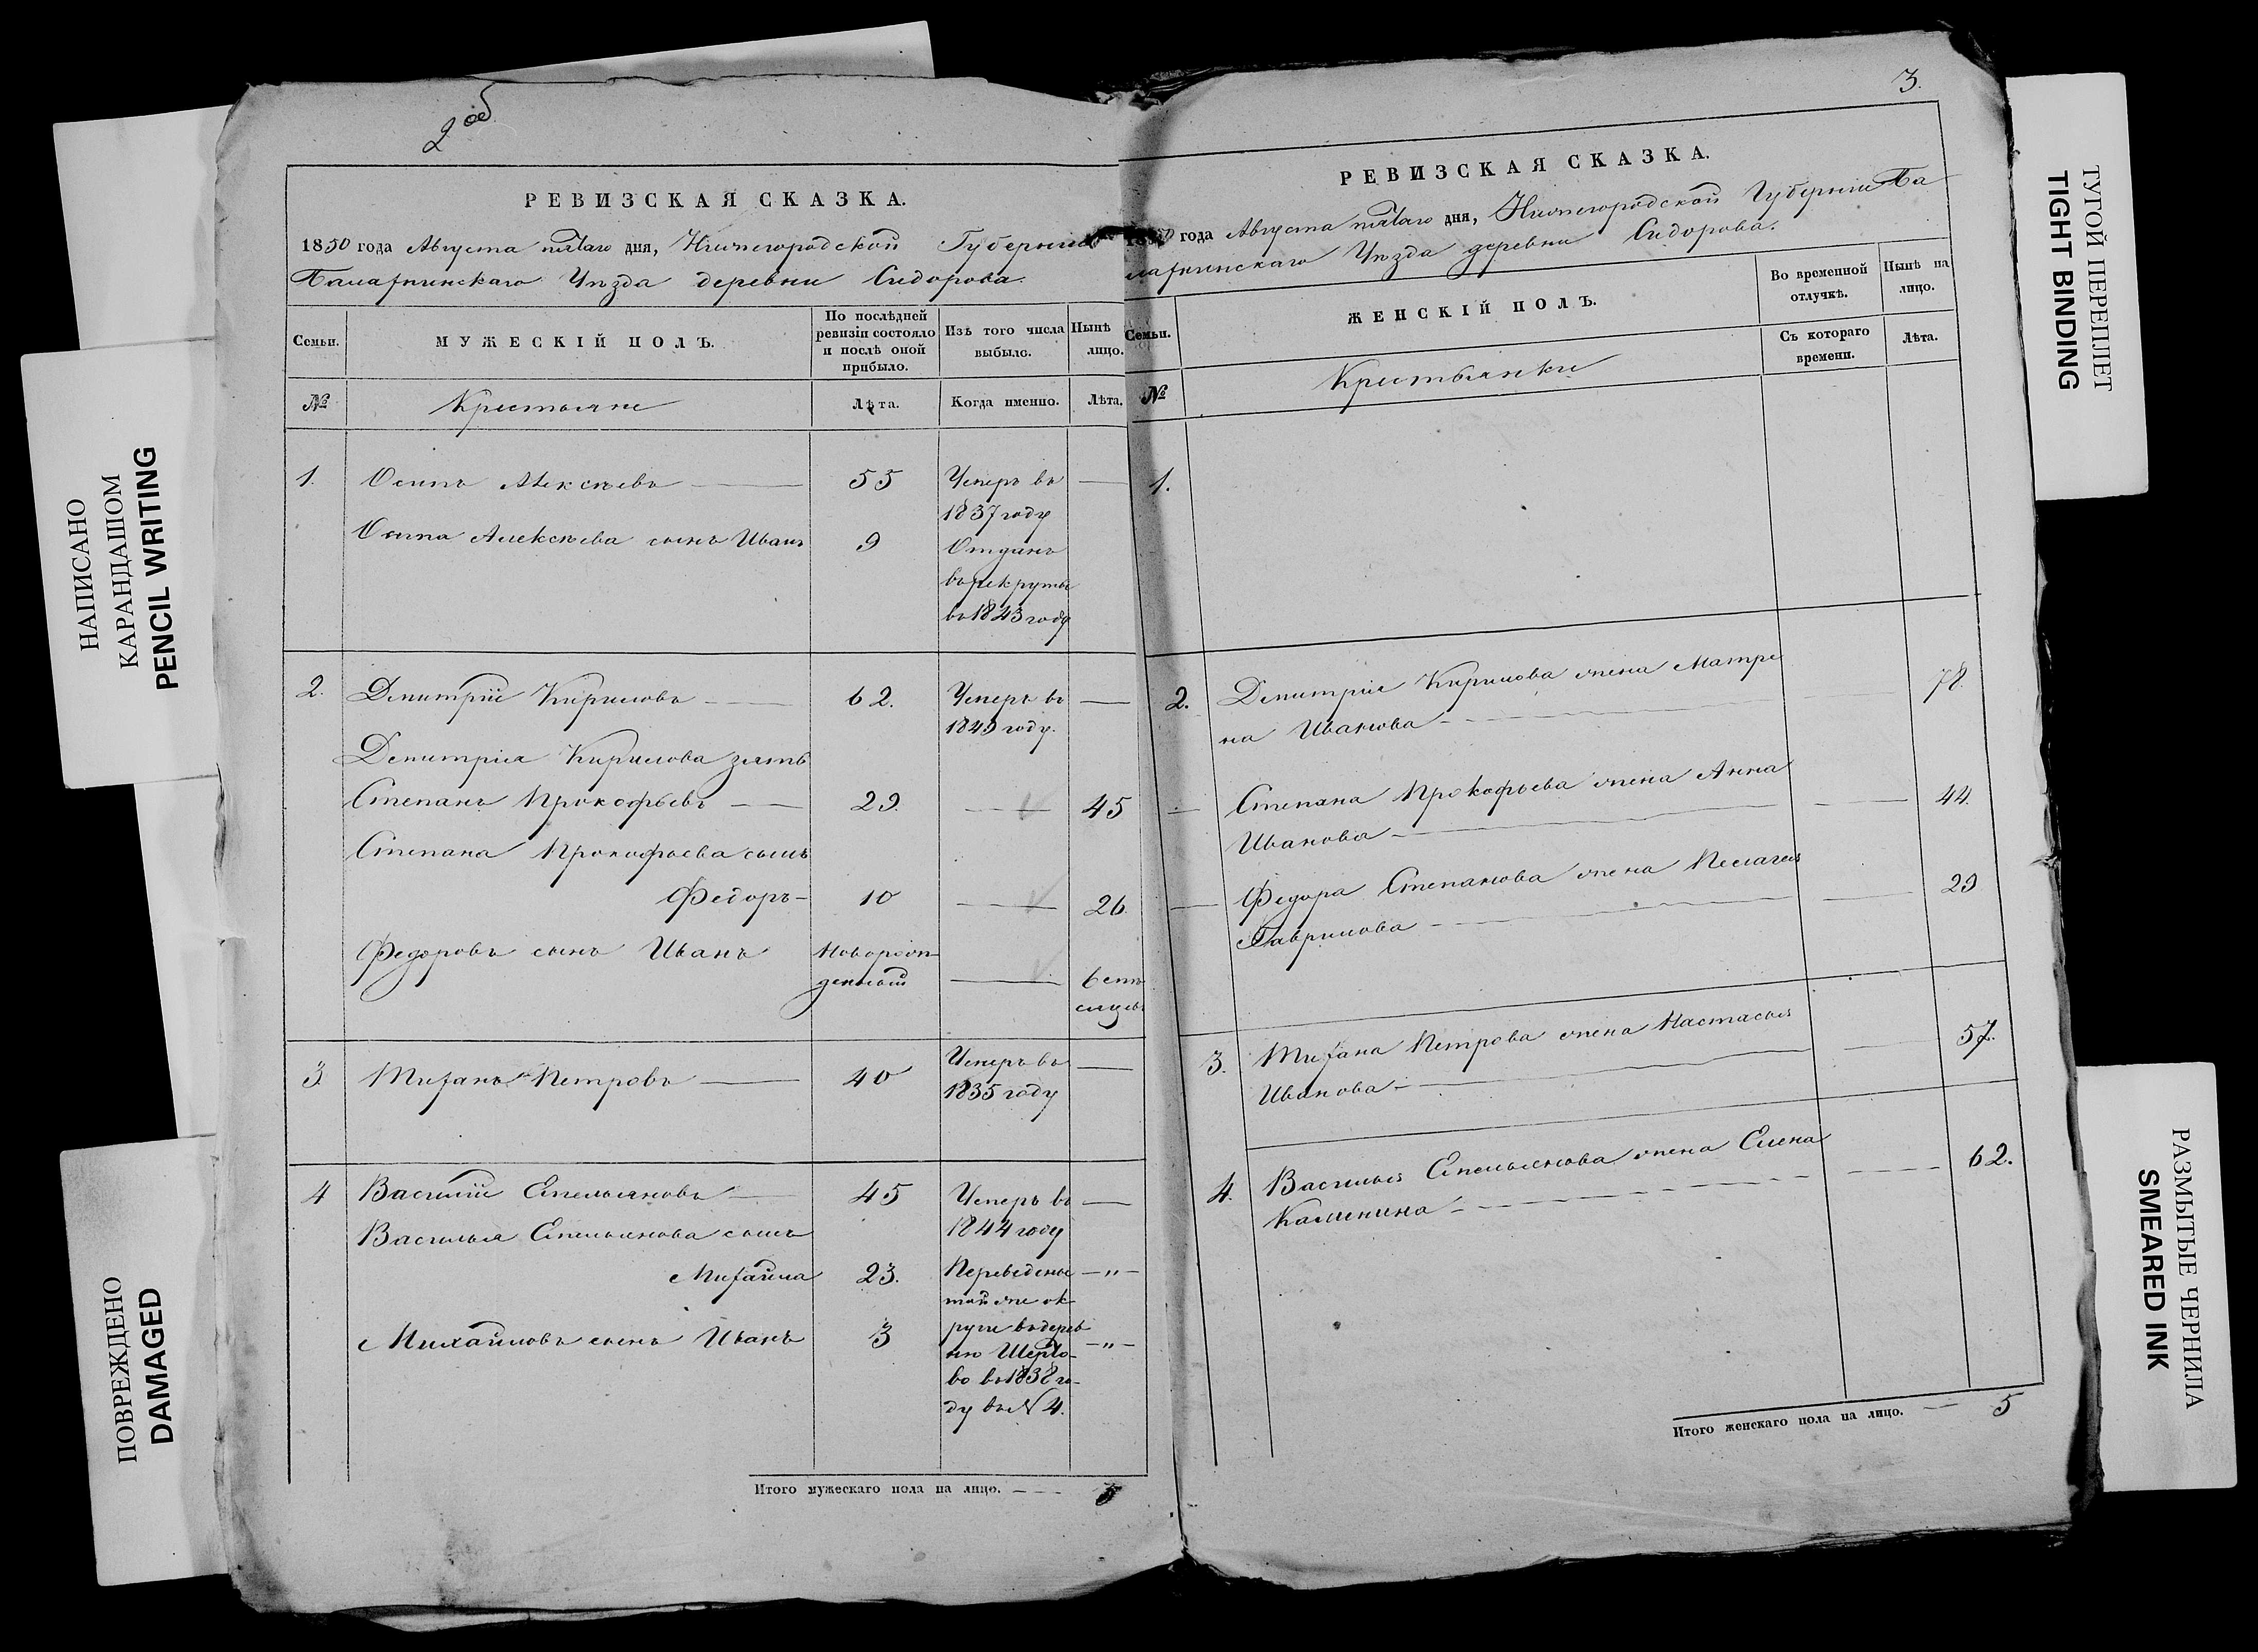 2 об
РЕВИЗСКАЯ СКАЗКА.
1850 года Августа пятаго дня, Нижегородской Губерніи
Балахнинскаго Уѣзда деревни Сидорова.
Семьи.
МУЖЕСКІЙ ПОЛЪ.
По послѣдней ревизіи состояло и послѣ оной прибыло.
Изъ того числа выбыло.
Нынѣ лицо.
№
Крестьяне
Лѣта.
Когда именно.
Лѣта.
1. Осипъ Алексѣевъ — 55 Умеръ въ —
1837 году
Осипа Алексѣева сынъ Иванъ 9 Отданъ
въ рекруты
въ 1843 году
2. Дмитрій Кириловъ — 62. Умеръ въ —
1849 году.
Дмитрія Кирилова зять
Степанъ Прокофьевъ — 29. — 45
Степана Прокофьева сынъ
Федоръ - 10 — 26.
Федоровъ сынъ Иванъ Новорож-
денный — 6 мѣ
3. Миханъ Петровъ — 40 Умеръ въ —
1835 году
4 Василій Емельяновъ — 45 Умеръ въ —
Василья Емельянова сынъ 1844 году
Михайла 23. Переведены — " —
той же ок-
Михайловъ сынъ Иванъ 3 руги въ дерев-
ню — " —
во въ 1838 го-
ду въ № 4.
Итого мужескаго пола на лицо. —
3.
РЕВИЗСКАЯ СКАЗКА.
1850 года Августа пятаго дня, Нижегородской Губерніи Ба
лахнинскаго Уѣзда деревни Сидорова.
Семьи.
ЖЕНСКІЙ ПОЛЪ.
Во временной отлучкѣ.
Нынѣ на лицо.
№
Крестьянки
Съ котораго времени.
Лѣта.
1.
2. Дмитрія Кирилова жена Матре — 78.
на Иванова —
— Степана Прокофьева жена Анна — 44.
Иванова —
— Федора Степанова жена Пелагея — 29
Гаврилова —
3. Михана Петрова жена Настасья — 57.
Иванова —
4. Василья Емельянова жена Елена — 62.
Калинина —
Итого женскаго пола на лицо. — 5
НАПИСАНО
КАРАНДАШОМ
PENCIL WRITING
ПОВРЕЖДЕНО
DAMAGED
ТУГОЙ ПЕРЕПЛЕТ
TIGHT BINDING
РАЗМЫТЫЕ ЧЕРНИЛА
SMEARED INK